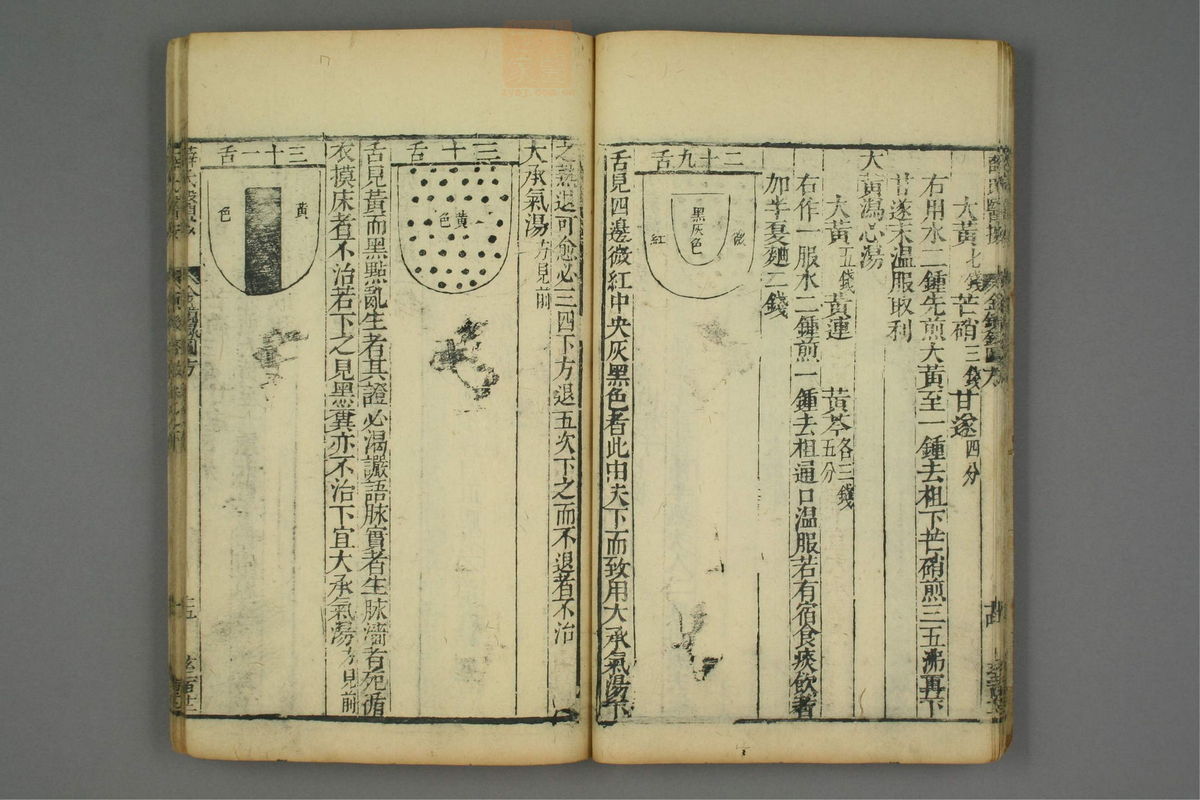 大黃七錢芒硝三錢甘遂四分
右用水二鍾先煎大黃至一鍾去柤下芒硝煎三五沸再下
甘遂末温服取利
大黃瀉心湯
大黃五錢黃連 黃芩各三錢五分
右作一服水二鍾煎一鍾去柤通口温服若有宿食痰飲者
加半夏麯二錢
二十九舌
微
黑灰色
紅
舌見四邊微紅中央灰黑色者此由失下而致用大承氣湯下
之熱退可愈必三四下方退五次下之而不退者不治
大承氣湯方見前
三十舌
黃色
舌見黃而黑點亂生者其證必渴讝語脉實者生脉濇者死循
衣摸床者不治若下之見黑糞亦不治下宜大承氣湯方見前
三十一舌
黃
色